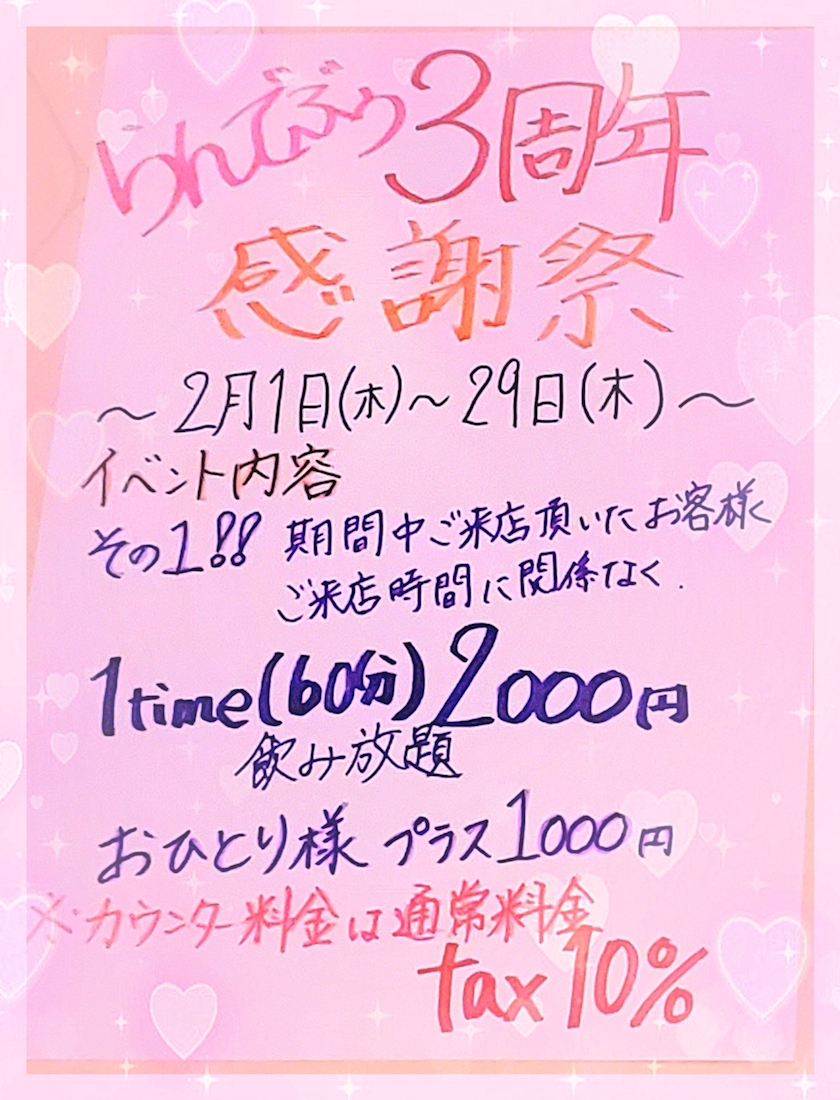 らんでぶぅ3周年
感謝祭
～2月1日(木)～29日(木)～
イベント内容
その1!! 期間中ご来店頂いたお客様
ご来店時間に関係なく.
1time(60分)2000円
飲み放題
おひとり様 プラス1000円
※カウンター料金は通常料金
tax10%